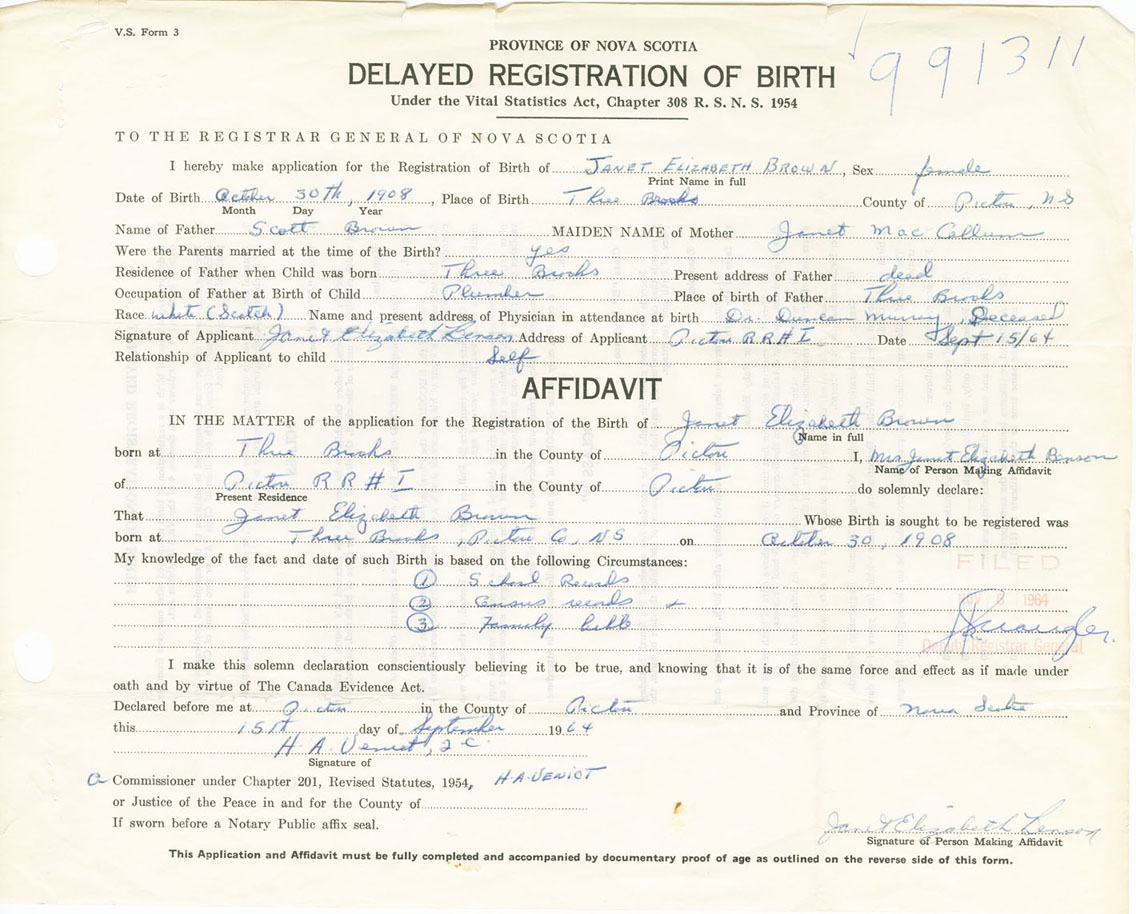 V.S. Form 3
991311
PROVINCE OF NOVA SCOTIA
DELAYED REGISTRATION OF BIRTH
Under the Vital Statistics Act, Chapter 308 R. S. N. S. 1954
TO THE REGISTRAR GENERAL OF NOVA SCOTIA
I hereby make application for the Registration of Birth of JANET ELIZABETH BROWN, Sex female
Print Name in full
Date of Birth October 30th, 1908, Place of Birth Three Brooks County of Pictou, NS
Month Day Year
Name of Father Scott Brown MAIDEN NAME of Mother Janet MacCallum
Were the Parents married at the time of the Birth? yes
Residence of Father when Child was born Three Brooks Present address of Father dead
Occupation of Father at Birth of Child Plumber Place of birth of Father Three Brooks
Race white (Scotch) Name and present address of Physician in attendance at birth Dr. Duncan Murray, Deceased
Signature of Applicant Janet Elizabeth Benson Address of Applicant Pictou RR#I Date Sept 15/64
Relationship of Applicant to child Self
AFFIDAVIT
IN THE MATTER of the application for the Registration of the Birth of Janet Elizabeth Brown
Name in full
born at Three Brooks in the County of Pictou I, Mrs Janet Elizabeth Benson
Name of Person Making Affidavit
of Pictou RR#I in the County of Pictou do solemnly declare:
Present Residence
That Janet Elizabeth Brown Whose Birth is sought to be registered was
born at Three Brooks, Pictou Co, NS on October 30, 1908
My knowledge of the fact and date of such Birth is based on the following Circumstances:
FILED
① School Records
② Census records +
1964
③ Family bible
Deputy Registrar General
I make this solemn declaration conscientiously believing it to be true, and knowing that it is of the same force and effect as if made under
oath and by virtue of The Canada Evidence Act.
Declared before me at Pictou in the County of Pictou and Province of Nova Scotia
this 15th day of September 1964
H. A. Veniot,
Signature of
a Commissioner under Chapter 201, Revised Statutes, 1954, H.A.VENIOT
or Justice of the Peace in and for the County of
If sworn before a Notary Public affix seal.
Janet Elizabeth Benson
Signature of Person Making Affidavit
This Application and Affidavit must be fully completed and accompanied by documentary proof of age as outlined on the reverse side of this form.